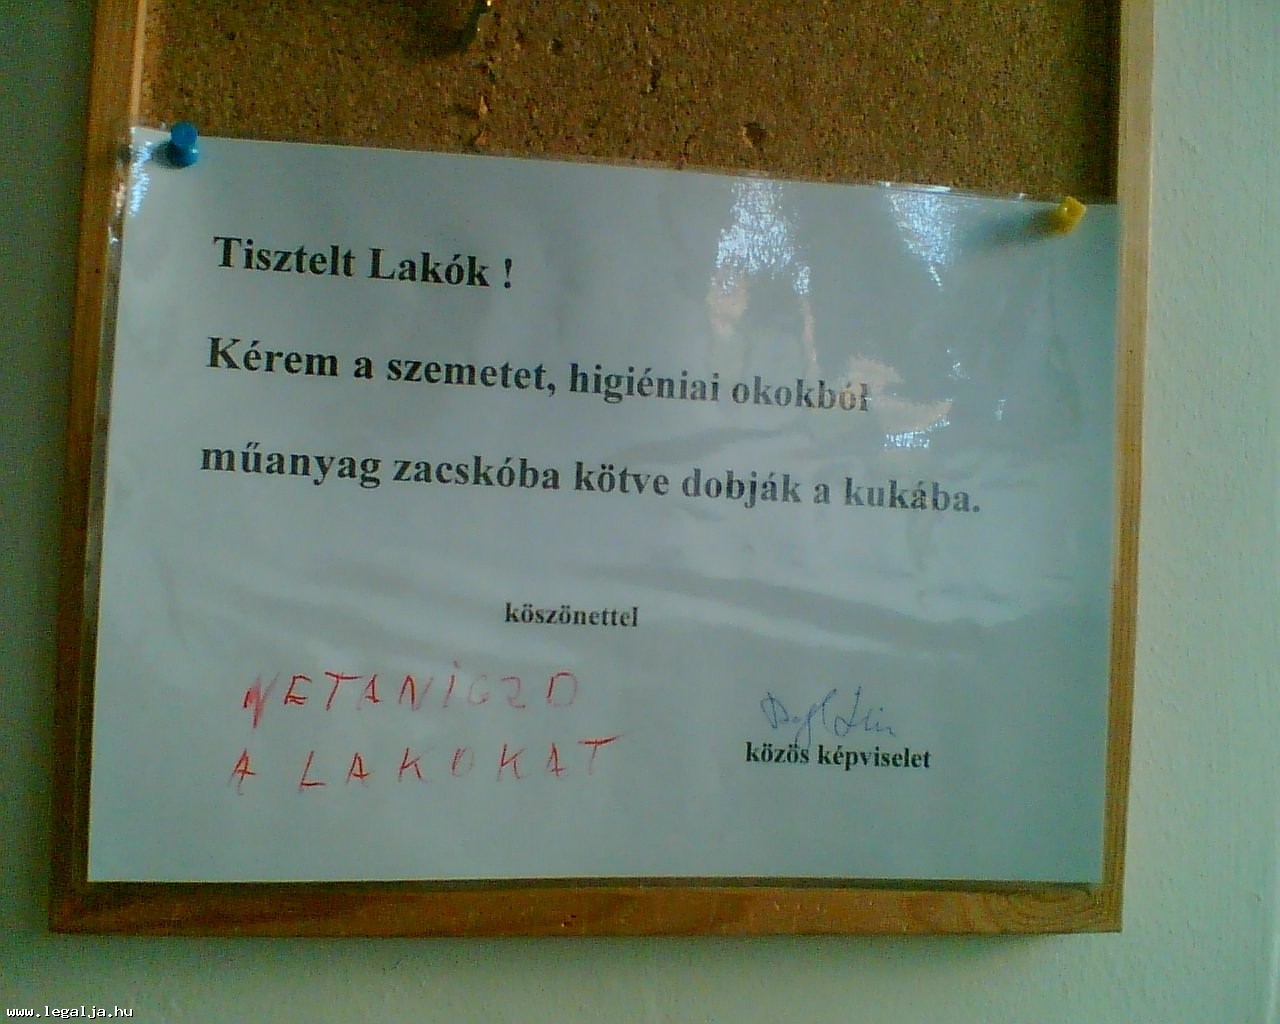 Tisztelt Lakók !
Kérem a szemetet, higiéniai okokból
műanyag zacskóba kötve dobják a kukába.
köszönettel
NETANİCZD
A LAKOKAT
közös képviselet
www.legalja.hu